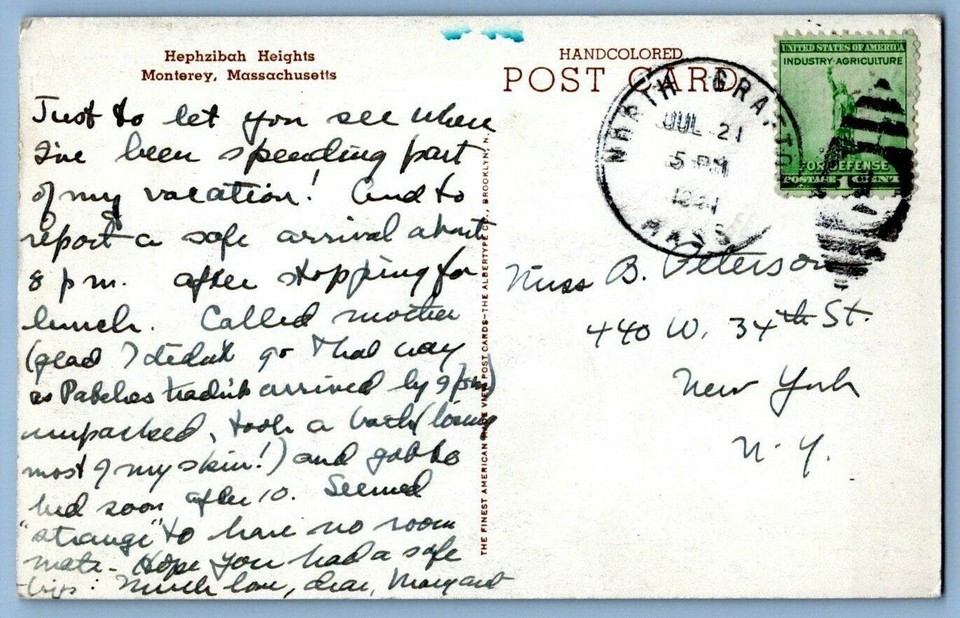 Hephzibah Heights
Monterey, Massachusetts
HANDCOLORED
POST CARD
UNITED STATES OF AMERICA
INDUSTRY·AGRICULTURE
FOR DEFENSE
POSTAGE 1 CENT
NORTH GRAFTON
JUL 21
5 PM
MASS
Just to let you see where
I've been spending part
of my vacation! And to
report a safe arrival about
8 pm. after stopping for
lunch. Called mother
(glad I didn't go that way
as Patches hadn't arrived by 9 pm)
unpacked, took a bath (losing
most of my skin!) and got to
bed soon after 10. Seemed
"strange" to have no room
mate - Hope you had a safe
trip. Much love, dear, Margaret
THE FINEST AMERICAN MADE VIEW POST CARDS—THE ALBERTYPE CO., BROOKLYN, N.
Miss B. Peterson
440 W. 34th St.
New York
N. Y.